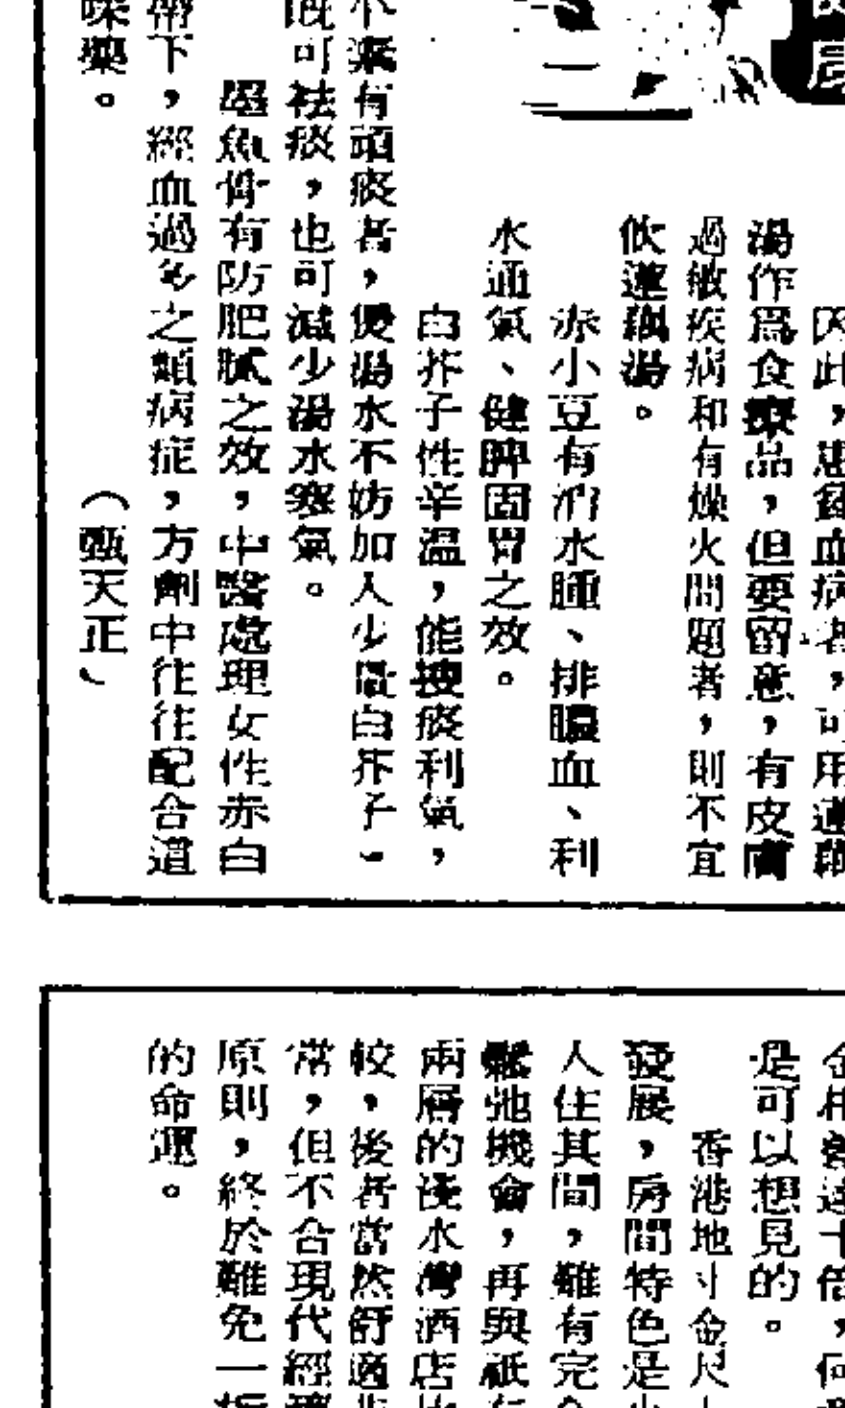 因此，患貧血病者，可用蓮藕
湯作爲食療品，但要留意，有皮膚
過敏疾病和有燥火問題者，則不宜
飲蓮藕湯。
赤小豆有消水腫、排膿血、利
水通氣、健脾固胃之效。
白芥子性辛温，能搜痰利氣，
有頑痰者，煲湯水不妨加入少量白芥子，
既可袪痰，也可減少湯水寒氣。
墨魚骨有防肥膩之效，中醫處理女性赤白
帶下，經血過多之類病症，方劑中往往配合這
味藥。
（甄天正）
是可以想見的。
香港地寸金尺
發展，房間特色是
人住其間，難有完
鬆弛機會，再與祇有
兩層的淺水灣酒店
較，後者當然舒適
常，但不合現代經濟
原則，終於難免一拆
的命運。